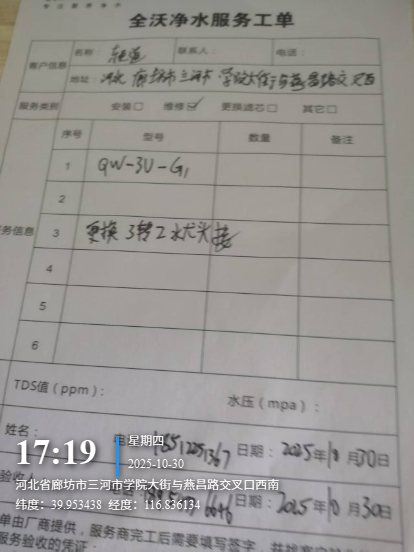 全沃净水服务工单
客户信息
名称：
联系人：
电话：
地址：河北 廊坊市三河市 学院大街与燕昌路交叉口西
服务类别 安装□ 维修☑ 更换滤芯□ 其它□
序号 型号 数量 备注
1 QW-3U-G1
2
务信息 3 更换 3转2 水龙头接
4
5
6
TDS值（ppm）： 水压（mpa）：
姓名： 电 日期：2025年10月30日
17:19
星期四
2025-10-30
河北省廊坊市三河市学院大街与燕昌路交叉口西南
纬度：39.953438 经度：116.836134
验收 日期：2025年10月30日
单由厂商提供，服务商完工后需要填写签字
服务的凭证：